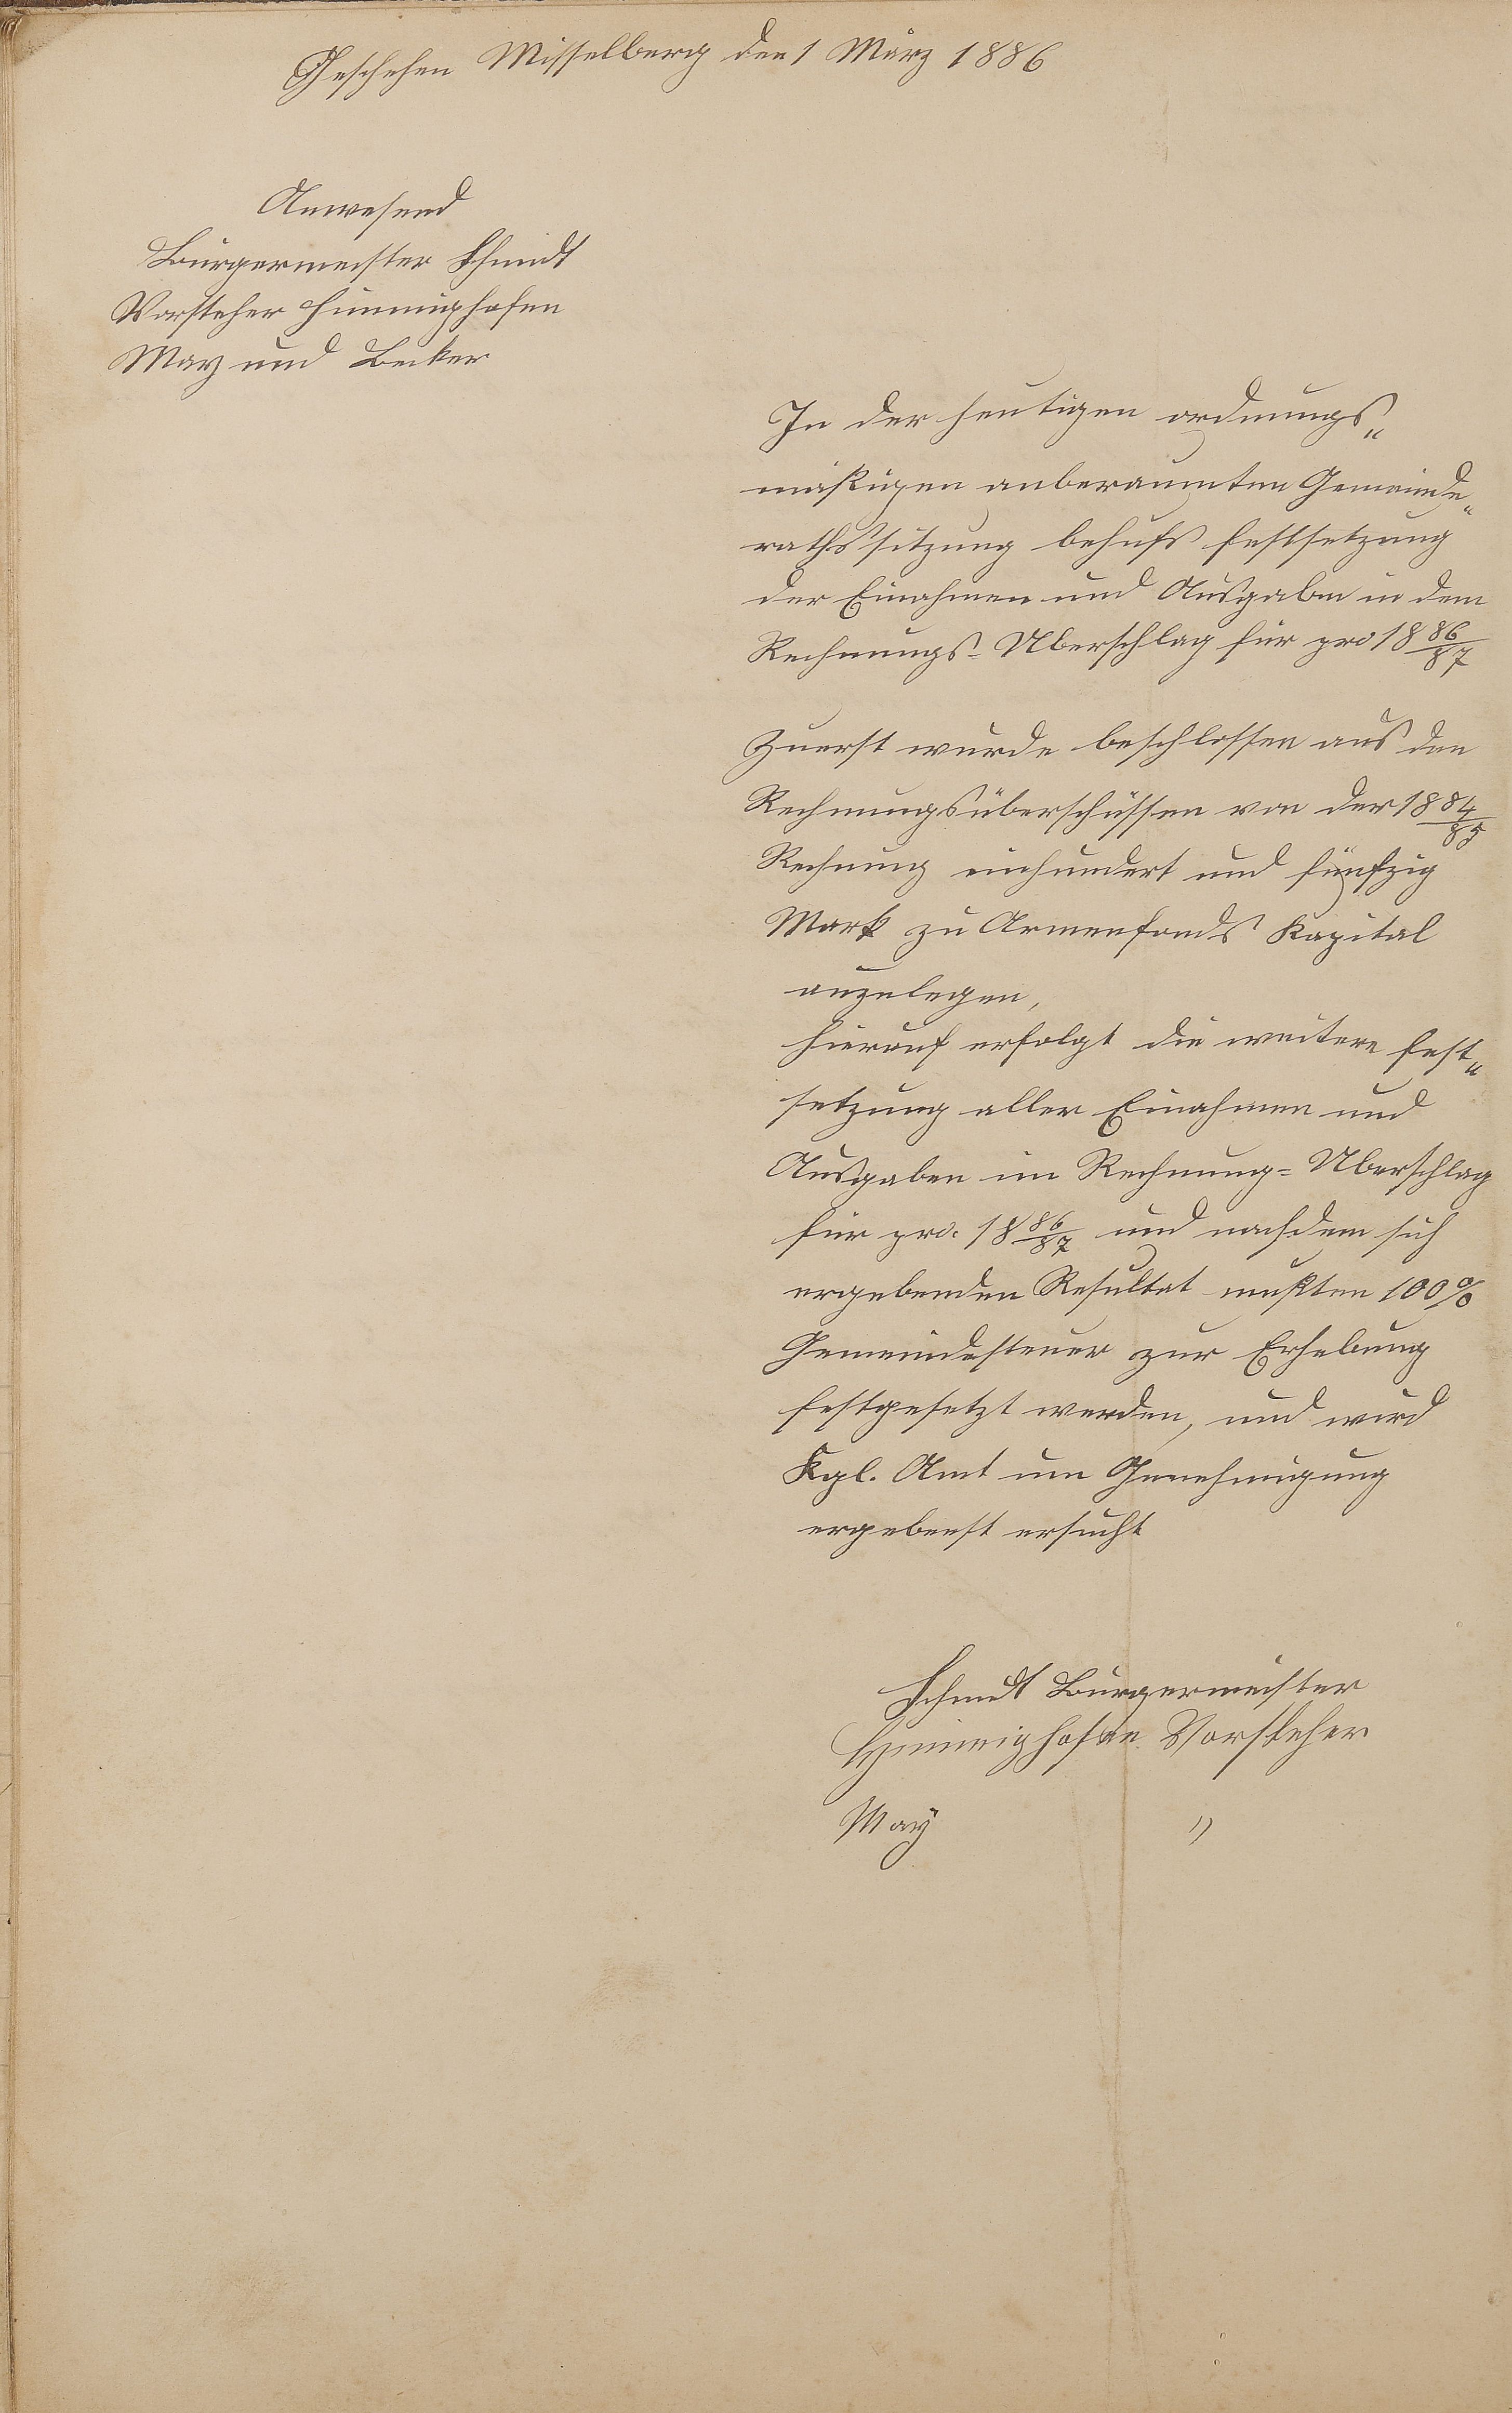 Geschehen Misselberg den 1 März 1886
Anwesend
Bürgermeister Schmidt
Vorsteher Himmighofen
May und Becker
In der heutigen ordnungs„
mäßigen anberaumten Gemeinde„
rathssitzung behufs Festsetzung
der Einahmen und Ausgaben in dem
Rechnungs-Uberschlag für pro 1886/87
Zuerst wurde beschlossen aus den
Rechnungsüberschüssen von der 1884/85
Rechnung einhundert und fünfzig
Mark zu Armenfonds Kapital
anzulegen,
Hierauf erfolgt die weitere Fest„
setzung aller Einahmen und
Ausgaben im Rechnung-Uberschlag
für pro. 1886/87 und nachdem sich
ergebenden Resultat mußten 100%
Gemeindesteuer zur Erhebung
festgesetzt werden, und wird
Kgl. Amt um Genehmigung
ergebenst ersucht
Schmidt Bürgermeister
Himmighofen Vorsteher
May "